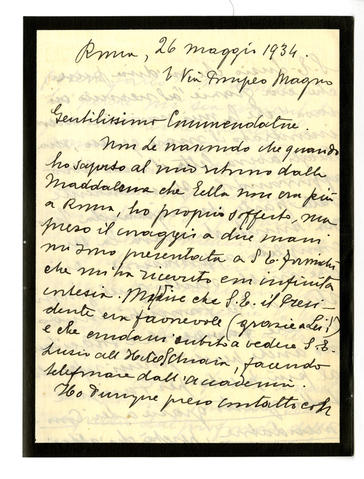 Roma, 26 maggio 1934.
1 Via Pompeo Magno
Gentilissimo Commendatore.
Non Le nascondo che quando
ho saputo al mio ritorno dalla
Maddalena che Ella non era più
a Roma, ho proprio sofferto, ma
preso il coraggio a due mani
mi sono presentata a S. E. Formichi
che mi ha ricevuto con infinita
cortesia. Mi disse che S. E. il Presi-
dente era favorevole (grazie a Lei!)
e che andassi subito a vedere S. E.
all'Hotel, facendo
telefonare dall'accademia.
Ho dunque preso contatto con